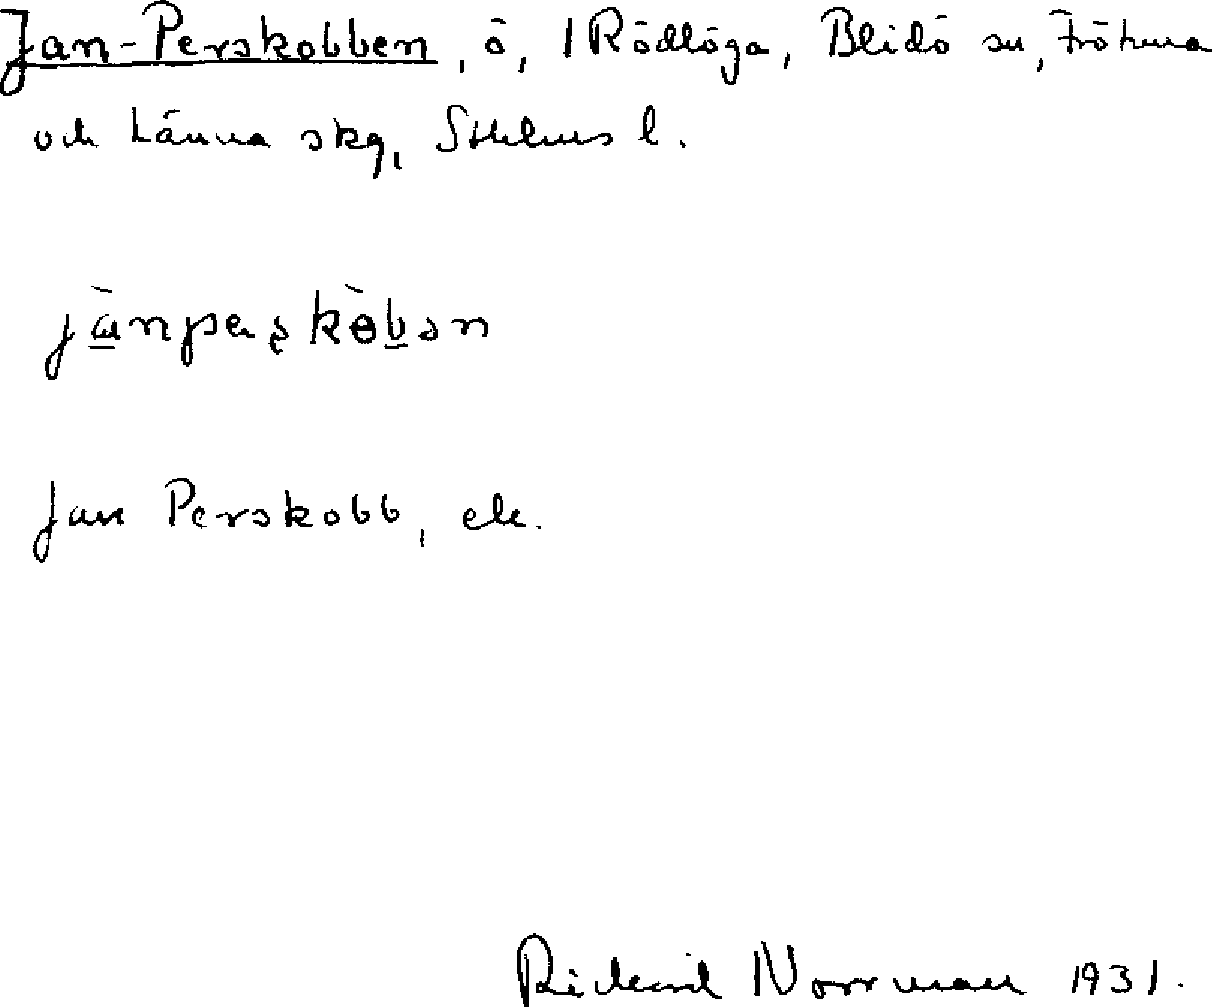 Jan-Perskobben, ö, 1 Rödlöga, Blidö sn, Frötuna
och Länna skg, Sthlms l.
jànpeʂkòbən
Jan Perskobb, ek.
Rickard Norrman 1931.